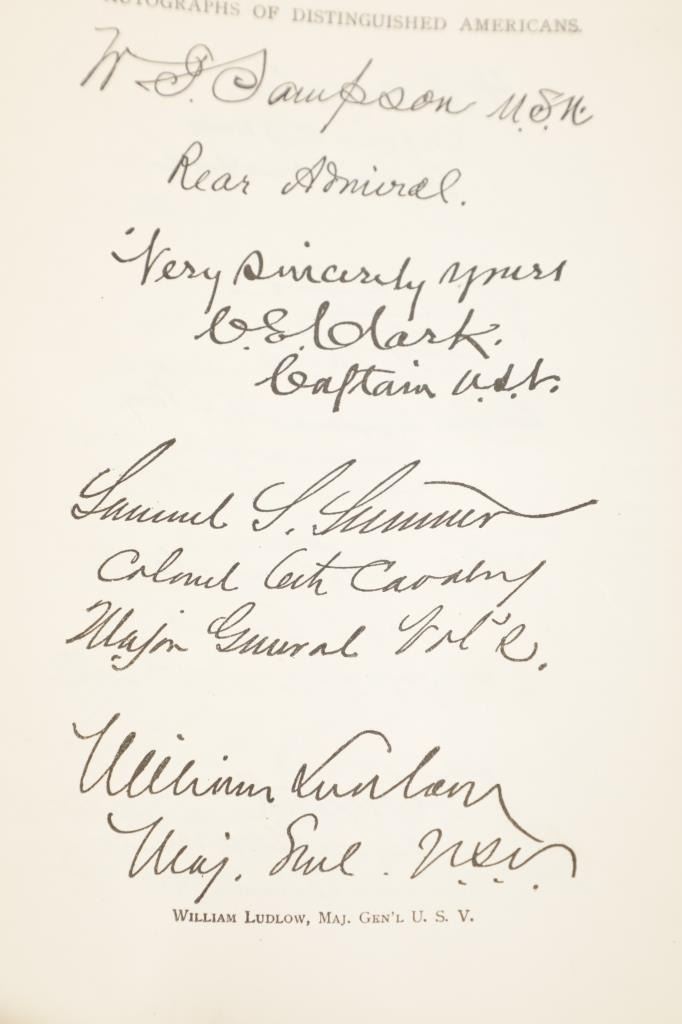 AUTOGRAPHS OF DISTINGUISHED AMERICANS.
W T Sampson U.S.N.
Rear Admiral.
Very sincerely yours
C.E. Clark.
Captain U.S.N.
Samuel S. Sumner
Colonel 6th Cavalry
Major General Vol's.
William Ludlow
Maj. Genl. U.S.V.
WILLIAM LUDLOW, MAJ. GEN'L U. S. V.